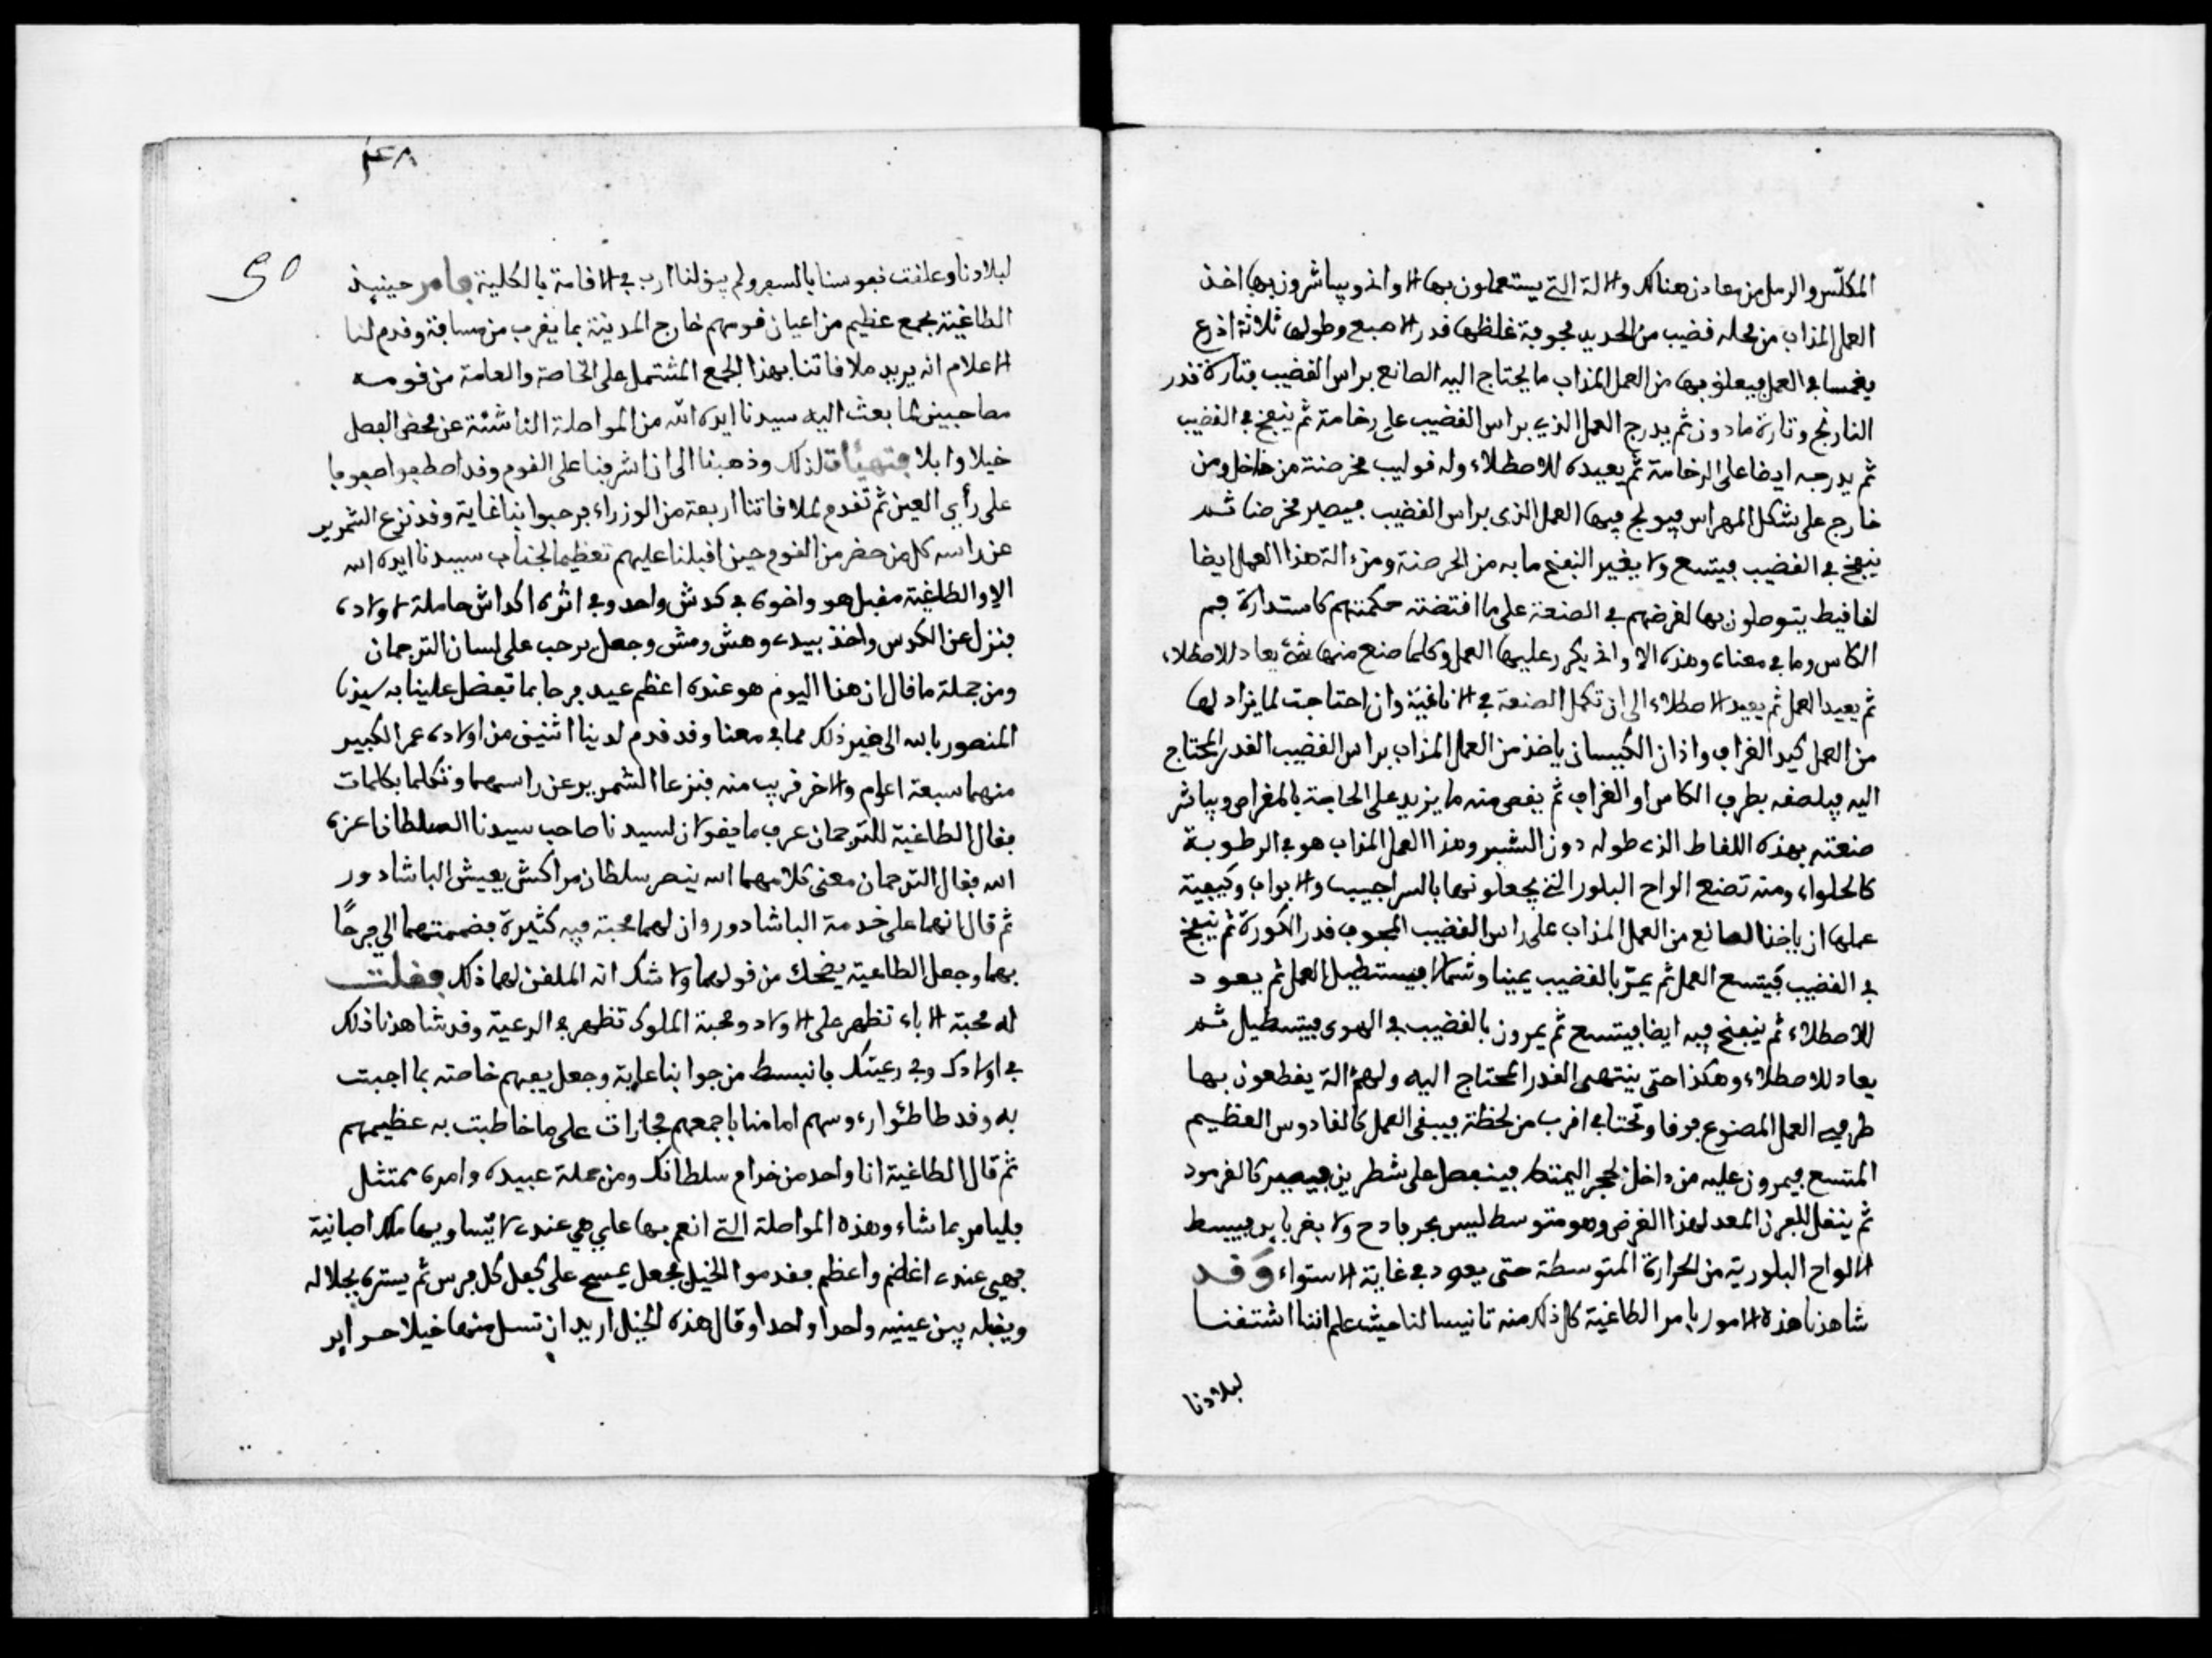 المكلّس والرمل من معادن هنالك والالة التي يستعملون بها الاواني ويباشرون بها اخذ
العمل المذاب من محله قضيب من الحديد مجوبة غلظها قدر الاصبع وطولها ثلاثة اذرع
يغمسا في العمل فيعلق بها من العمل المذاب ما يحتاج اليه الصانع براس القضيب فتارة قدر
النارنج وتارة ما دون ثم يدرج العمل الذي براس القضيب على رخامة ثم ينفخ في القضيب
ثم يدرجه ايضا على الرخامة ثم يعيده للاصطلاء وله قوليب مخرصنة من داخل ومن
خارج على شكل المهراس فيولج فيها العمل الذى براس القضيب فيصير مخرضا ثم
ينفخ في القضيب فيتسع ولا يغير النفخ ما به من الخرصنة ومن ءالة هذا العمل ايضا
لفافيط يتوصلون بها لغرضهم في الصنعة على ما اقتضته حكمتهم كاستدارة فم
الكاس وما في معناه وهذه الاواني يكرر عليها العمل وكلما صنع منها شئ يعاد للاصطلاء
ثم يعيد العمل ثم يعيد الاصطلاء الى ان تكمل الصنعة في الانافية وان احتاجت لما يزاد لها
من العمل كيد الغراف واذان الكيسان ياخذ من العمل المذاب براس القضيب القدر المحتاج
اليه فيلصقه بطرف الكاس او الغراف ثم يقص منه ما يزيد على الحاجة بالمقراص ويباشر
صنعته بهذه اللقاط الذى طوله دون الشبر وهذا العمل المذاب هو في الرطوبة
كالحلواء ومنه تصنع الواح البلور التي يجعلونها بالسراجيب والابواب وكيفية
عملها ان ياخذ الصانع من العمل المذاب على راس القضيب المجوف قدر الكورة ثم ينفخ
في القضيب فيتسع العمل ثم يمرّ بالقضيب يمينا وشمالا فيستطيل العمل ثم يعود
للاصطلاء ثم ينفخ فيه ايضا فيتسع ثم يمرون بالقضيب في الهوى فيستطيل ثم
يعاد للاصطلاء وهكذا حتى ينتهى القدر المحتاج اليه ولهم ءالة يقطعون بها
طرفي العمل المصنوع فوقا وتحتا في اقرب من لحظة فيبقى العمل كالقادوس العظيم
المتسع فيمرون عليه من داخل بحجر اليمنتط فينفصل على شطرين فيصير كالفرمود
ثم ينقل للفرن المعد لهذا الغرض وهو متوسط ليس بحر فادح ولا بقر بارد فيبسط
الالواح البلورية من الحرارة المتوسطة حتى يعود في غاية الاستواء وقد
شاهدنا هذه الامور بامر الطاغية كل ذلك منه تانيسا لنا حيث علم اننا اشتقنا
لبلادنا
٢٤٨
50
لبلادنا وعلقت نفوسنا بالسفر ولم يبق لنا ارب في الاقامة بالكلية فامر حينيذ
الطاغية بجمع عظيم من اعيان قومهم خارج المدينة بما يقرب من مسافة وقدم لنا
الاعلام انه يريد ملاقاتنا بهذا الجمع المشتمل على الخاصة والعامة من قومه
مصاحبين لما بعث اليه سيدنا ايده الله من المواصلة الناشئة عن محض الفضل
خيلا وابلا فتهيأت لذلك وذهبنا الى ان اشرفنا على القوم وقد اصطفوا صفوفا
على رأي العين ثم تقدم لملاقاتنا اربعة من الوزراء فرحبوا بنا غاية وقد نزع الشمرير
عن راسه كل من حضر من القوم حين اقبلنا عليهم تعظيما لجناب سيدنا ايده الله
الا والطاغية مقبل هو واخوه في كدش واحد وفي اثره اكداش حاملة لاولاده
فنزل عن الكدس واخذ بيدي وهش ومش وجعل يرحب على لسان الترجمان
ومن جملة ما قال ان هذا اليوم هو عنده اعظم عيد فرحا بما تفضل علينا به سيدنا
المنصور بالله الى غير ذلك مما في معنا وقد قدم لدينا اثنين من اولاده عمر الكبير
منهما سبعة اعوام والاخر قريب منه فنزعا الشمرير عن راسهما وتكلما بكلمات
فقال الطاغية للترجمان عرف ما يقولان لسيدنا صاحب سيدنا السلطان اعزه
الله فقال الترجمان معنى كلامهما الله ينصر سلطان مراكش يعيش الباشادور
ثم قال انهما على خدمة الباشادور وان لهما محبة فيه كثيرة فضممتهما الي فرحًا
بهما وجعل الطاغية يضحك من قولهما ولا شك انه الملقن لهما ذلك فقلت
له محبة الاباء تظهر على الاولاد ومحبة الملوك تظهر في الرعية وقد شاهدنا ذلك
في اولادك وفي رعيتك فانبسط من جوابنا غاية وجعل يفهم خاصته بما اجبت
به وقد طاطئوا رءوسهم امامنا باجمعهم مجازات على ما خاطبت به عظيمهم
ثم قال الطاغية انا واحد من خدام سلطانك ومن جملة عبيده وامره ممتثل
فليامر بما شاء وهذه المواصلة التي انعم بها علي هي عندى لا يساويها ملك اصبانية
فهي عندى اغلى واعظم فقدموا الخيل فجعل يمسح على كفل كل فرس ثم يستره بجلاله
ويقبله بين عينيه واحدا واحدا وقال هذه الخيل اريد ان تنسل منها خيلا حراير